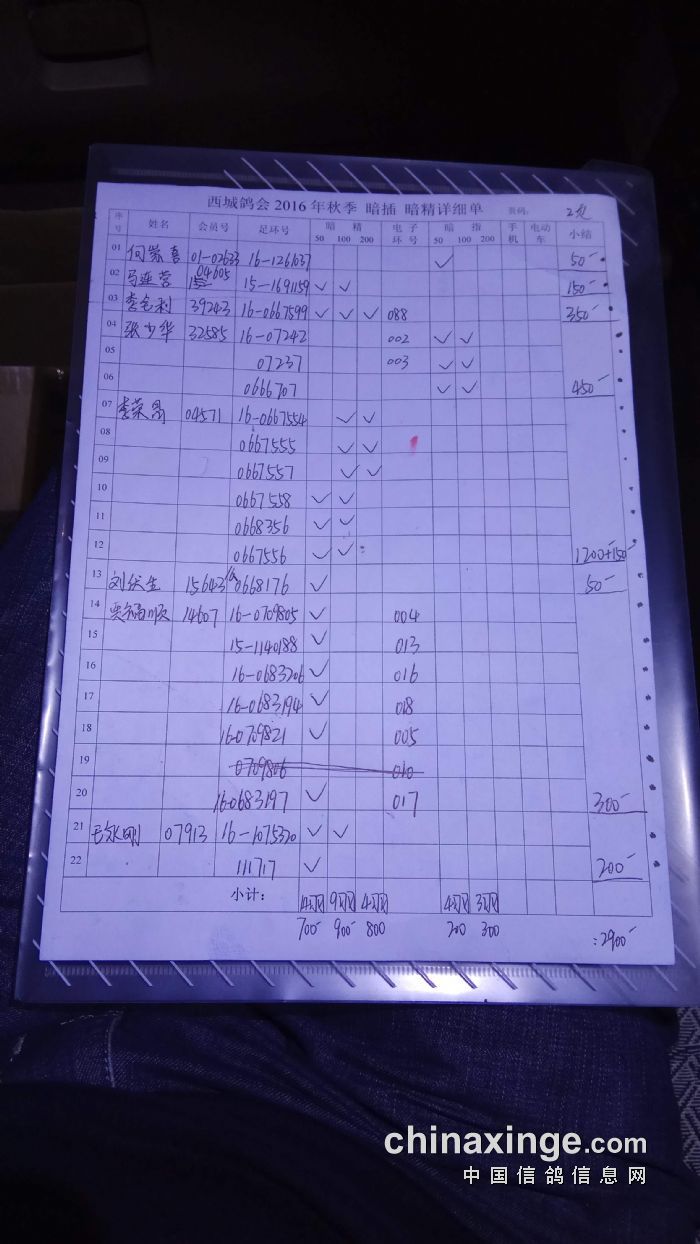 西城鸽会2016年秋季 暗插 暗精详细单 页码： 2页
序号 姓名 会员号 足环号 暗精 50 100 200 电子环号 暗指 50 100 200 手机 电动车 小结
01 何 喜 01-02633 16-1261037 ✓ 50-
02 马连营 04605 15-1691159 ✓ ✓ 150-
03 利 39243 16-0667599 ✓ ✓ ✓ 088 350-
04 张少华 32585 16-07242 002 ✓ ✓
05 07237 003 ✓ ✓
06 0666707 ✓ ✓ 450-
07 李荣 04571 16-0667554 ✓ ✓
08 0667555 ✓ ✓
09 0667557 ✓ ✓
10 0667558 ✓ ✓
11 0668356 ✓ ✓
12 0667556 ✓ ✓ 1200+150-
13 刘 生 15643 16 0668176 ✓ 50-
14 顺 14607 16-0709805 ✓ 004
15 15-1140188 ✓ 013
16 16-0683206 ✓ 016
17 16-0683194 ✓ 018
18 16-0709821 ✓ 005
19 0709806 010
20 16-0683197 ✓ 017 300-
21 刚 07913 16-1075320 ✓ ✓
22 111717 ✓ 200-
小计： 14羽 9羽 4羽 4羽 3羽
700- 900- 800 200 300 :2900-
chinaxinge.com
中国信鸽信息网